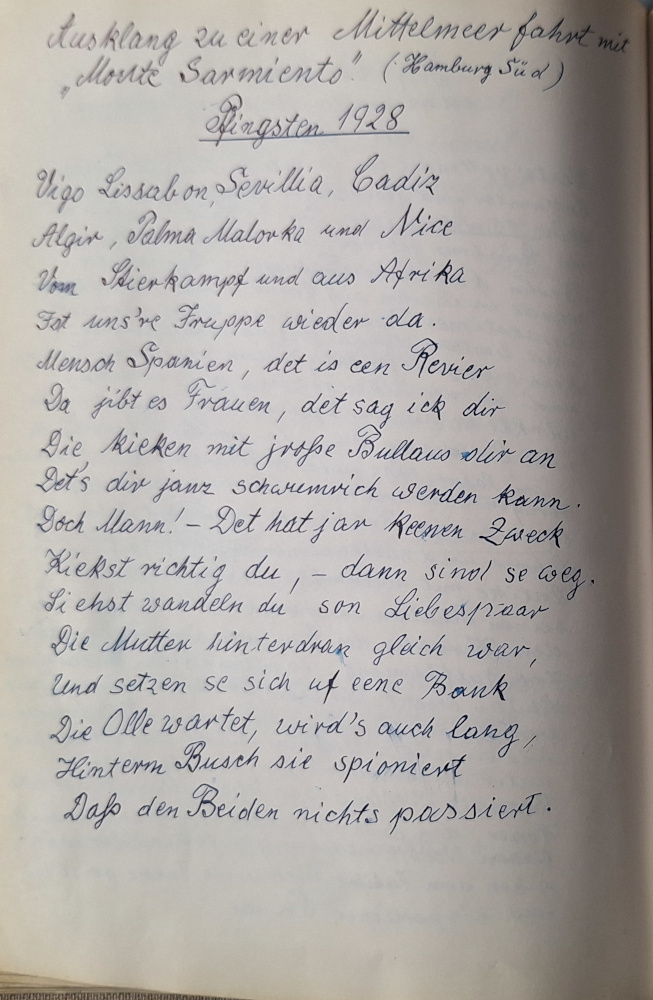 Ausklang zu einer Mittelmeerfahrt mit
„Monte Sarmiento". (Hamburg Süd)
Pfingsten 1928
Vigo Lissabon, Sevillia, Cadiz
Algir, Palma Malorka und Nice
Vom Stierkampf und aus Afrika
Ist uns're Truppe wieder da.
Mensch Spanien, det is een Revier
Da jibt es Frauen, det sag ick dir
Die kieken mit jroße Bullaus dir an
Det's dir janz schwumrich werden kann.
Doch Mann! – Det hat jar keenen Zweck
Kiekst richtig du, – dann sind se weg.
Siehst wandeln du son Liebespaar
Die Mutter hinterdran gleich war,
Und setzen se sich uf eene Bank
Die Olle wartet, wird's auch lang,
Hinterm Busch sie spioniert
Daß den Beiden nichts passiert.